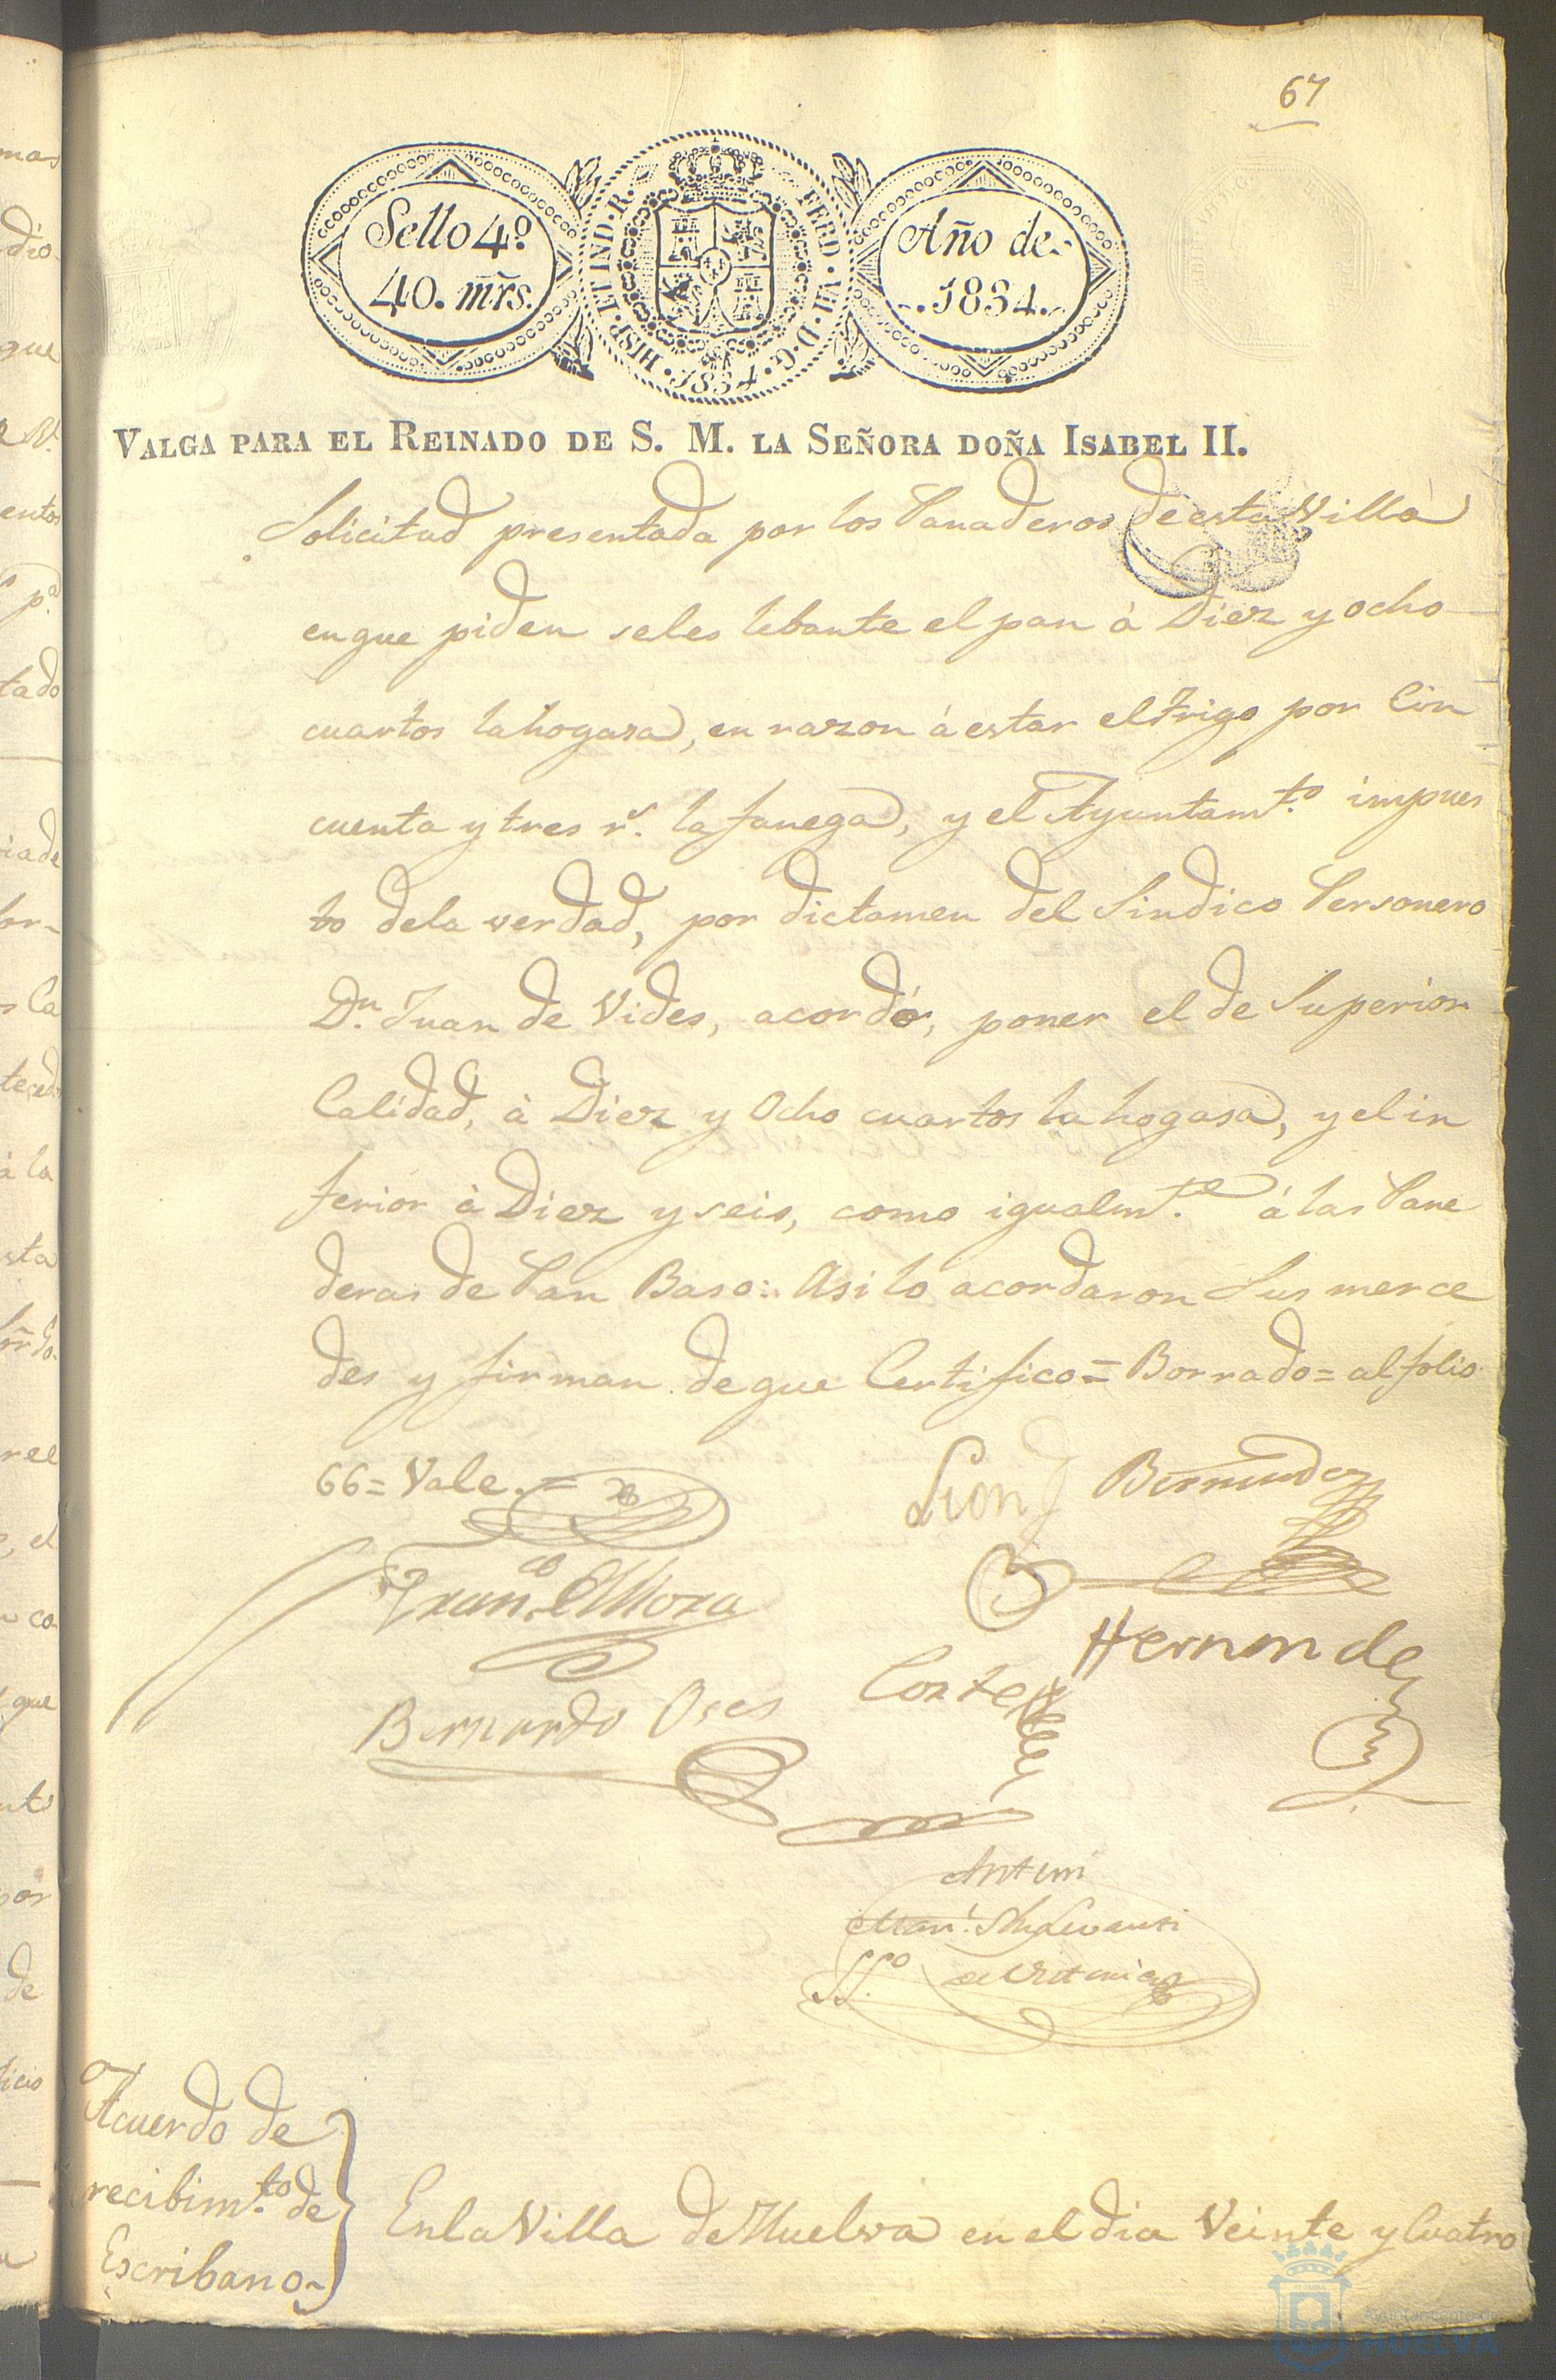 67
Sello 4º
40. mrs.
HISP. ET IND. R.
FERD. VII. D. G.
1834
Año de
1834.
VALGA PARA EL REINADO DE S. M. LA SEÑORA DOÑA ISABEL II.
Solicitud presentada por los Panaderos de esta Villa
en que piden se les lebante el pan à Diez y ocho
cuartos la hogasa, en razon á estar el trigo por Cin
cuenta y tres rs. la fanega, y el Ayuntamto. impues
to de la verdad, por dictamen del Sindico Personero
Dn. Juan de Vides, acordó, poner el de Superior
Calidad, à Diez y Ocho cuartos la hogasa, y el in
ferior à Diez y seis, como igualmte. á las Pane
deras de Pan Baso: Asi lo acordaron Sus merce
des y firman de que Certifico = Borrado = al folio
66 = Vale. =
Leon
Bermudez
Franco. Mora
Hernandez
Cortes
Bernardo Oses
Manl.
Acuerdo de
recibimto. de
Escribano
En la Villa de Huelva en el dia Veinte y Cuatro
Ayuntamiento de
HUELVA